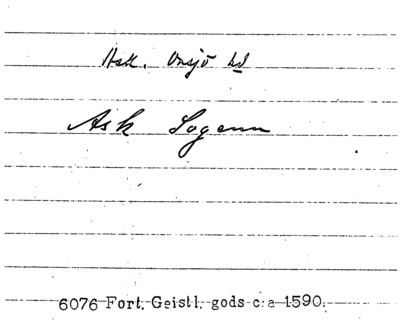 Ask. Onsjö hd
Ask Sogenn
6076 Fort. Geistl. gods c:a 1590.